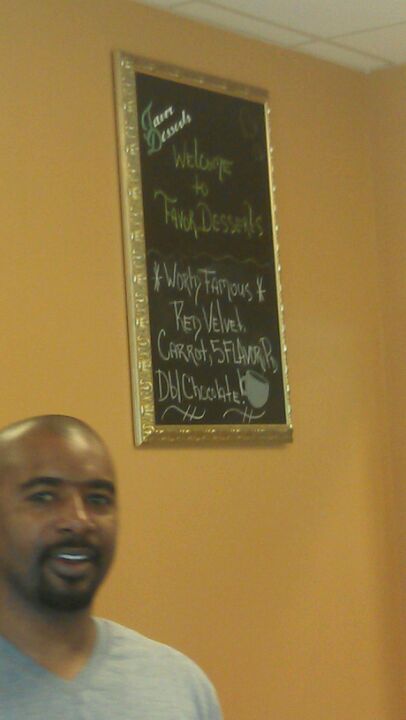 Favor
Desserts
Welcome
to
Favor Desserts
* World Famous *
Red Velvet,
Carrot, 5 Flavor,
Dbl Chocolate!